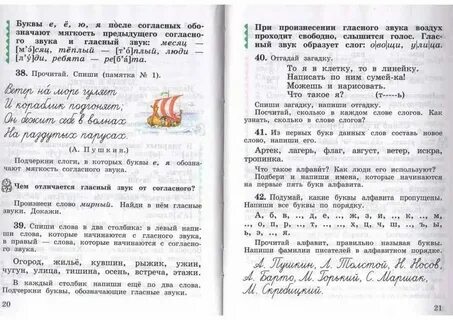 Буквы е, ё, ю, я после согласных обо-
значают мягкость предыдущего согласно-
го звука и гласный звук: месяц —
[м'э́]сяц, тёплый — [т'о́]плый, люди —
[л'у́]ди, ребята — ре[б'а́]та.
38. Прочитай. Спиши (памятка № 1).
Ветер на море гуляет
И кораблик подгоняет;
Он бежит себе в волнах
На раздутых парусах.
(А. Пушкин.)
Подчеркни слоги, в которых буквы е, я обозна-
чают мягкость согласного звука.
Чем отличается гласный звук от согласного?
Произнеси слово мирный. Найди в нём гласные
звуки. Докажи.
39. Спиши слова в два столбика: в левый напи-
ши слова, которые начинаются с гласного звука,
в правый — слова, которые начинаются с согласно-
го звука.
Огород, жильё, кувшин, рыжик, ужин,
чугун, улица, тишина, осень, встреча, этажи.
В каждый столбик напиши ещё по два слова.
Подчеркни буквы, обозначающие гласные звуки.
20
При произнесении гласного звука воздух
проходит свободно, слышится голос. Глас-
ный звук образует слог: о|во|щи, у|ли|ца.
40. Отгадай загадку.
То я в клетку, то в линейку.
Написать по ним сумей-ка!
Можешь и нарисовать.
Что такое я? (т-----ь)
Спиши загадку, напиши отгадку.
Посчитай, сколько в каждом слове слогов. Как
узнать, сколько в слове слогов?
41. Из первых букв данных слов составь новое
слово, напиши его.
Артек, лагерь, флаг, август, ветер, искра,
тропинка.
Что такое алфавит? Как люди его используют?
Подбери и напиши имена, которые начинаются
на первые пять букв алфавита.
42. Подумай, какие буквы алфавита пропущены.
Напиши все буквы по порядку.
Прочитай алфавит, правильно называя буквы.
Напиши фамилии писателей в алфавитном порядке.
А. Пушкин, Л. Толстой, Н. Носов,
А. Барто, М. Горький, С. Маршак,
М. Скребицкий.
21